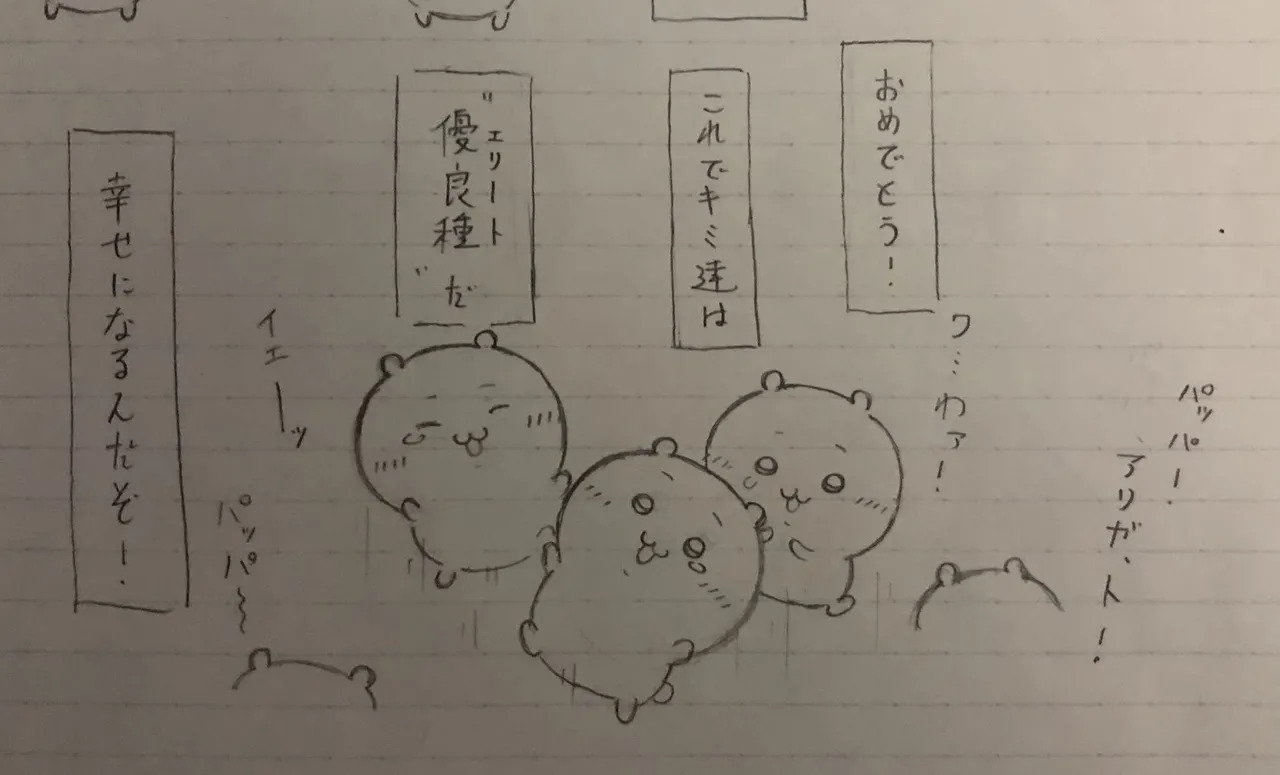 おめでとう!
これでキミ達は
"エリート
優良種"だ
幸せになるんだぞ!
パッパ!
アリガ、ト!
ワ…わァ!
イエーッ
パッパ〜